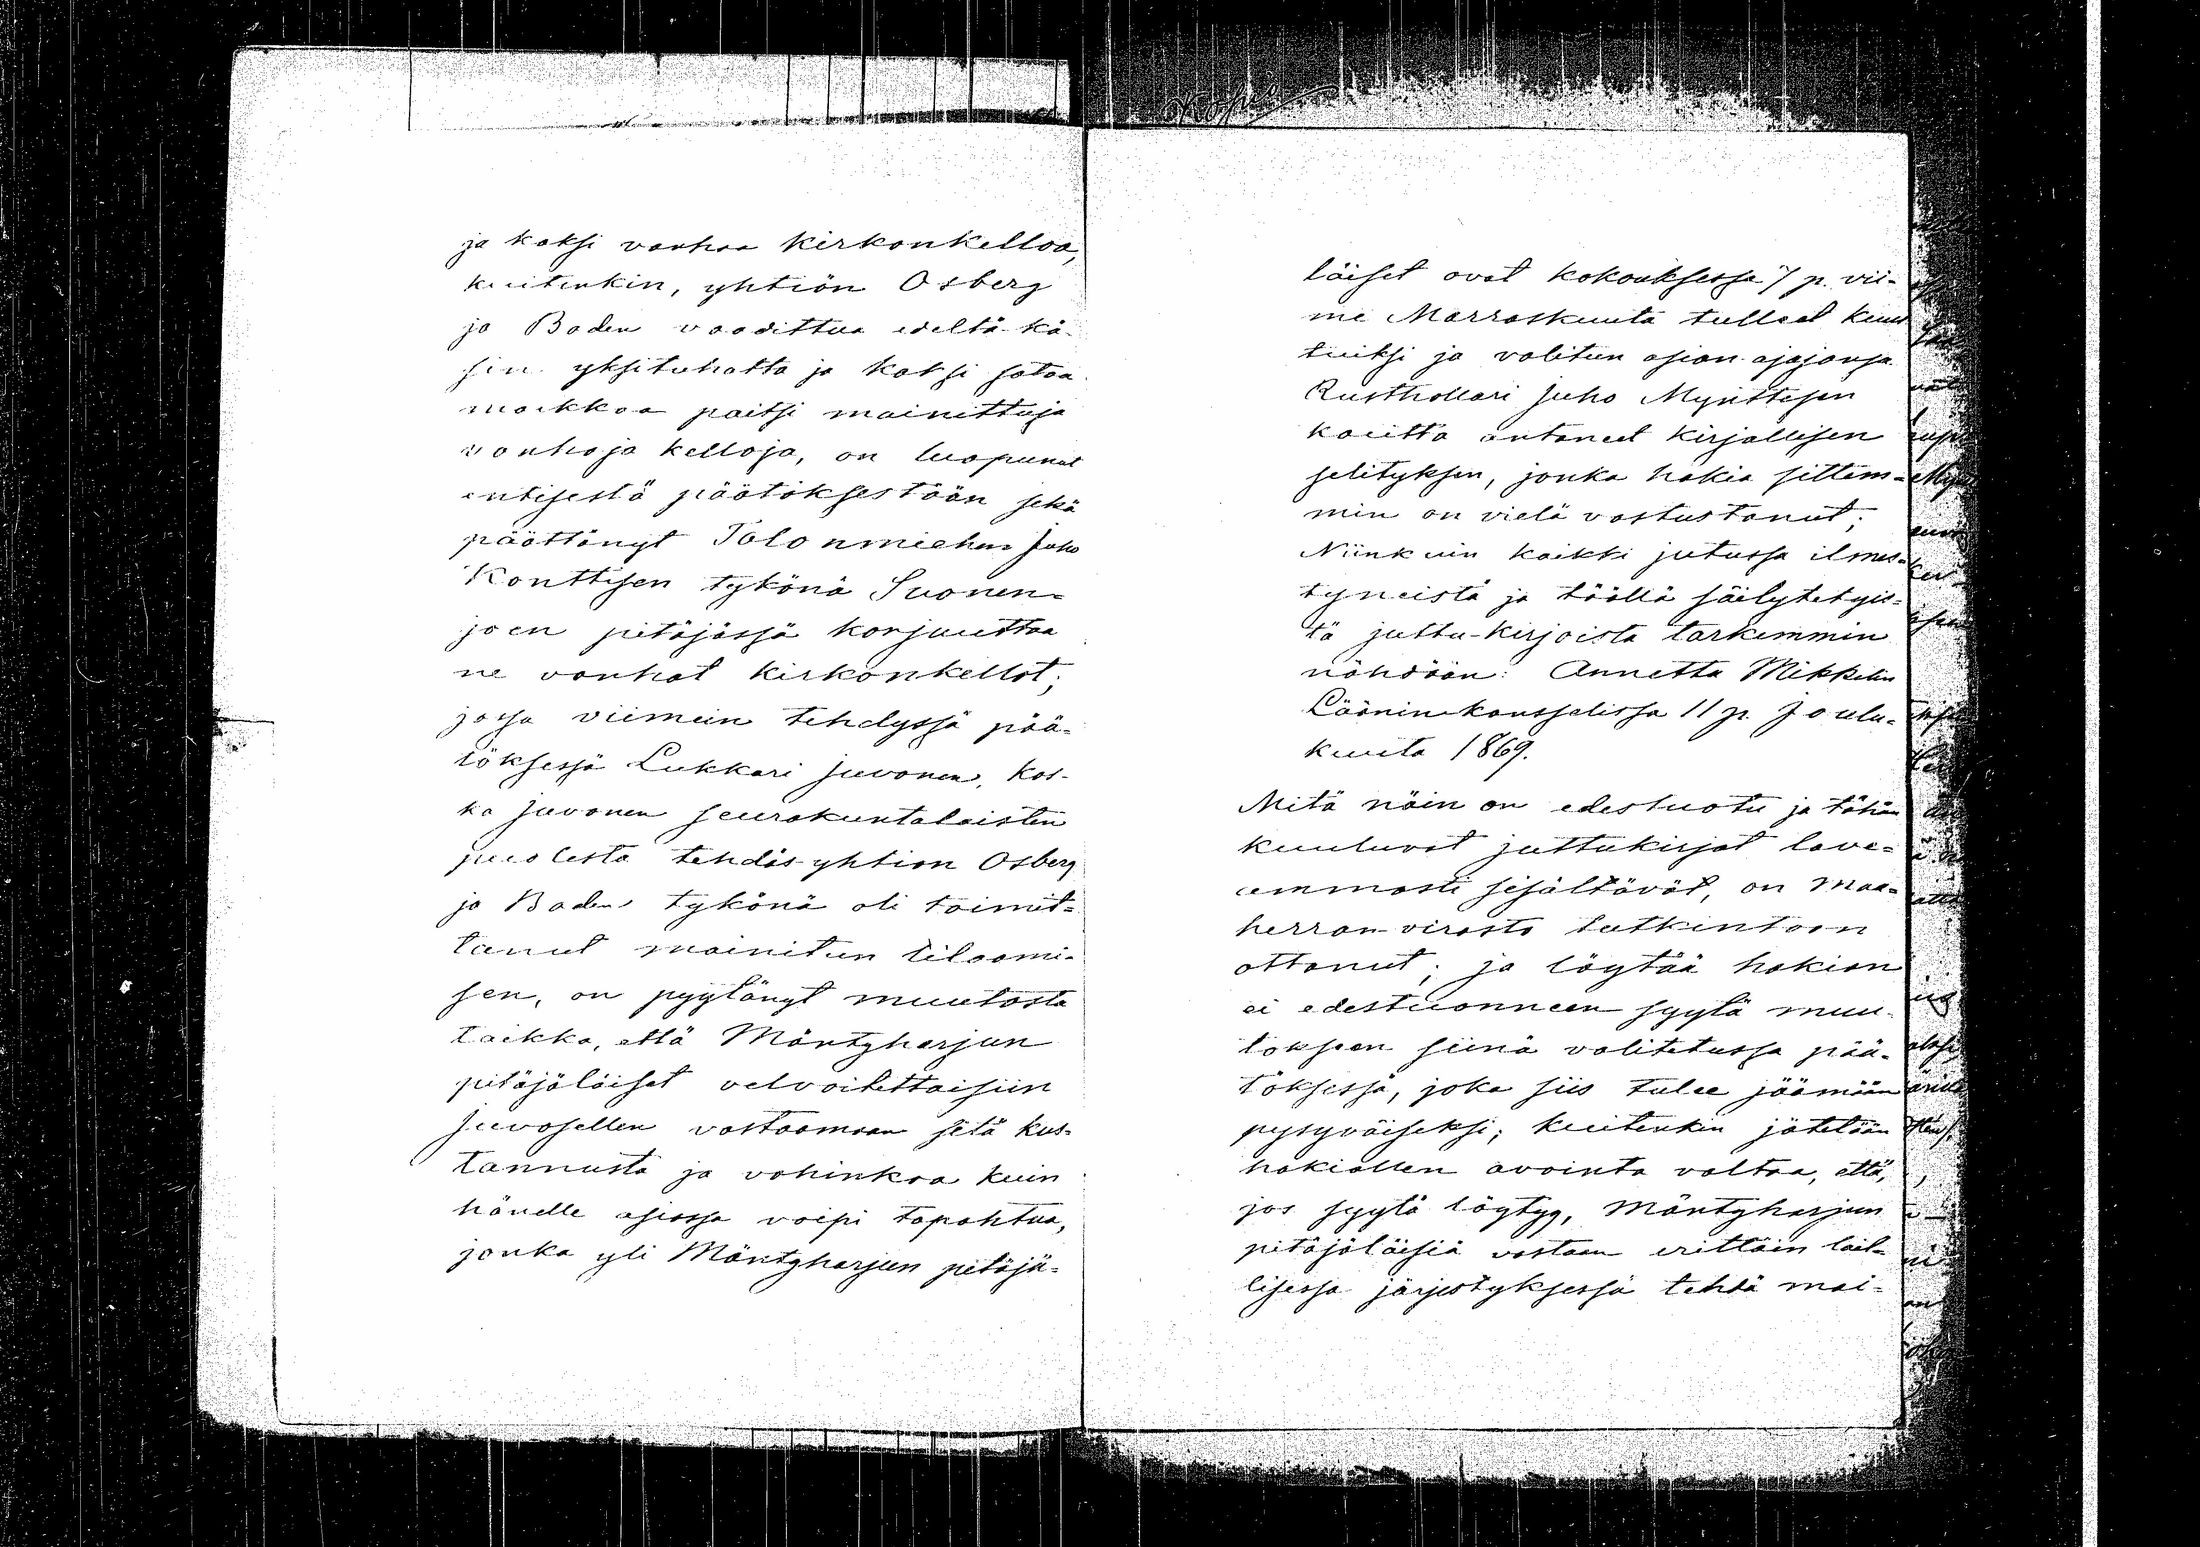 Kopio
ja kaksi vanhaa kirkonkelloa,
kuitenkin, yhtiön Osberg
ja Baden vaadittua edeltä-kä-
sin yksituhatta ja kaksi sataa
markkaa paitsi mainittuja
vanhoja kelloja, on luopunut
entisestä päätöksestään sekä
päättänyt Talonmiehen Juho
Konttisen tykönä Suonen-
joen pitäjässä korjuuttaa
ne vanhat kirkonkellot;
jossa viimein tehdyssä pää-
töksessä Lukkari Juvonen, kos-
ka Juvonen seurakuntalaisten
puolesta tehdäs-yhtion Osberg
ja Baden tykönä oli toimit-
tanut mainitun tilaami-
sen, on pyytänyt muutosta
taikka, että Mäntyharjun
pitäjäläiset velvoitettaisiin
Juvosellen vastaamaan sitä kus-
tannusta ja vahinkoa kuin
hänelle asiassa voipi tapahtua,
jonka yli Mäntyharjun pitäjä-
läiset ovat kokouksessa 7 p. vii-
me Marraskuuta tulleet kuul
tuiksi ja valitun asian-ajajansa
Rusthollari Juho Mynttisen
kautta antaneet kirjallisen
selityksen, jonka hakia sittem-
min on vielä vastustanut;
Niinkuin kaikki jutussa ilmes-
tyneistä ja täällä säilytetyis-
tä juttu-kirjoista tarkemmin
nähdään: Annettu Mikkelin
Läänin kansselissa 11 p. Joulu-
kuuta 1869.
Mitä näin on edestuotu ja tähän
kuuluvat juttukirjat lave-
ammasti sisältävät, on Maa-
herran-virasto tutkintoon
ottanut; ja löytää hakian
ei edestuonneen syytä muu-
tokseen siinä valitetussa pää-
töksessä, joka siis tulee jäämään
pysyväiseksi; kuitenkin jätetään
hakiallen avointa valtaa, että,
jos syytä löytyy, Mäntyharjun
pitäjäläisiä vastaan erittäin lail-
lisessa järjestyksessä tehtä mai-